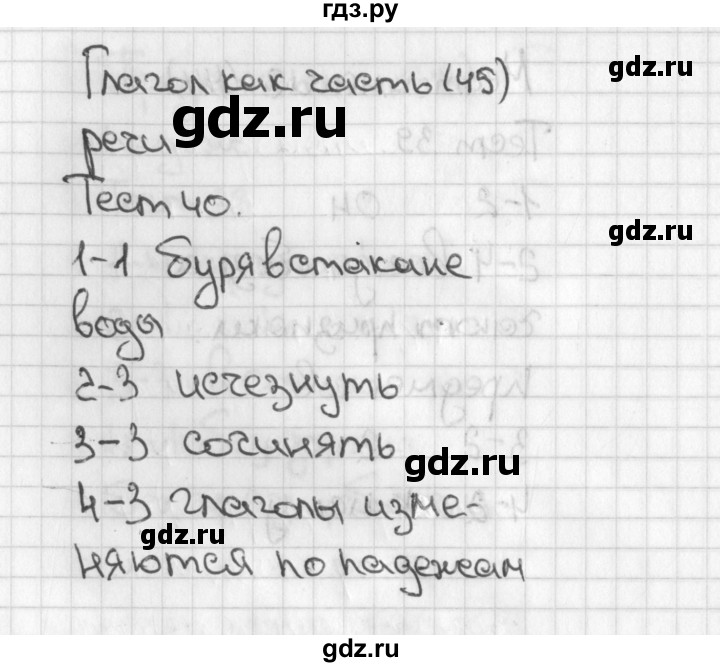 гдз.ру
Глагол как часть (45)
gdz.ru
gdz.ru
речи
Тест 40.
gdz.ru
1-1 буря в стакане
воды
2-3 исчезнуть
3-3 сочинять
gdz.ru
4-3 глаголы изме-
gdz.ru
няются по падежам
gdz.ru